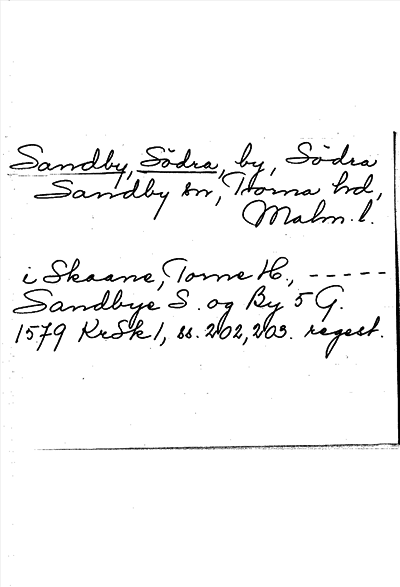 Sandby, Södra, by, Södra
Sandby sn, Torna hd,
Malm. l.
i Skaane, Torne H., -----
Sandbye S. og By 5 G.
1579 KrSk 1, ss. 202, 203. regest.